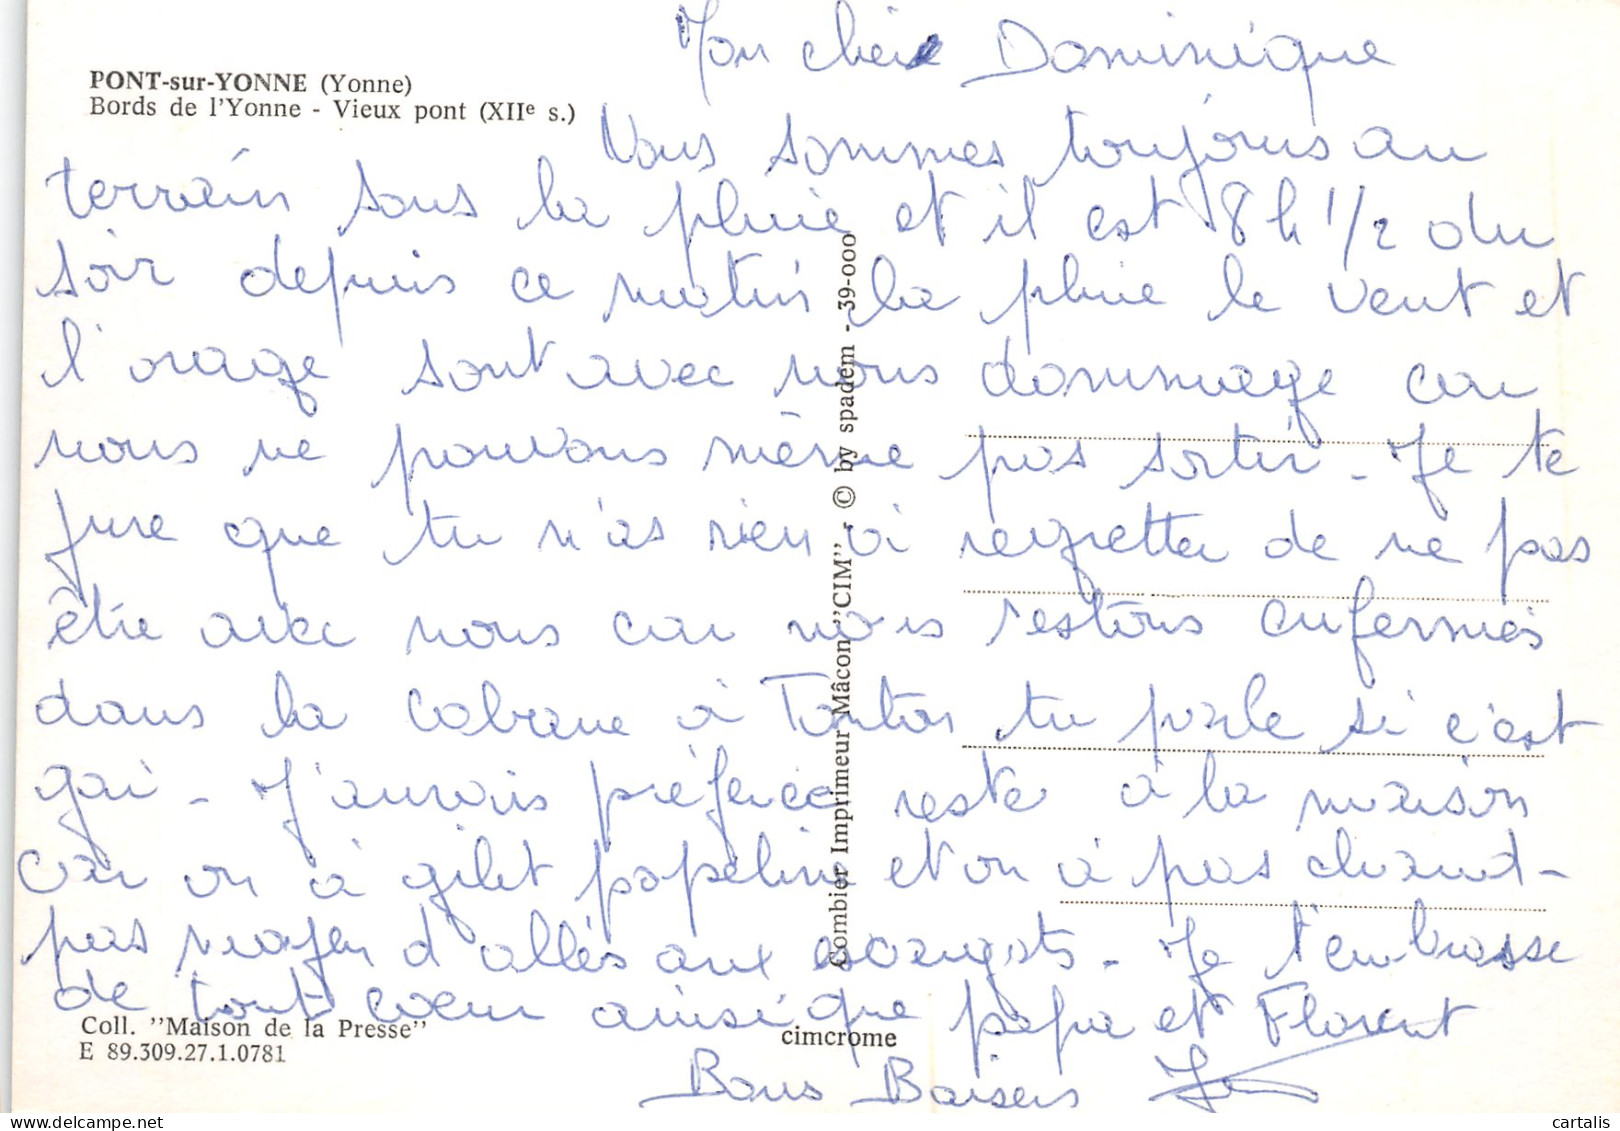 Mon cher Dominique
PONT-sur-YONNE (Yonne)
Bords de l'Yonne - Vieux pont (XIIe s.)
Nous sommes toujours au
terrain sous la pluie et il est 8 h 1/2 du
soir depuis ce matin la pluie le vent et
l'orage sont avec nous dommage car
nous ne pouvons même pas sortir - Je te
jure que tu n'as rien à regretter de ne pas
être avec nous car nous restons enfermés
dans la cabane à Tonton tu parle si c'est
gai - J'aurais préférée resté à la maison
car on à gilet papeline et on à pas chaud -
pas moyen d'allés aux escargots - Je t'embrasse
de tout coeur ainsi que papa et Florent
Bons Baisers
Combier Imprimeur Mâcon "CIM" - © by spadem - 39-000
Coll. "Maison de la Presse"
E 89.309.27.1.0781
cimcrome
cartalis